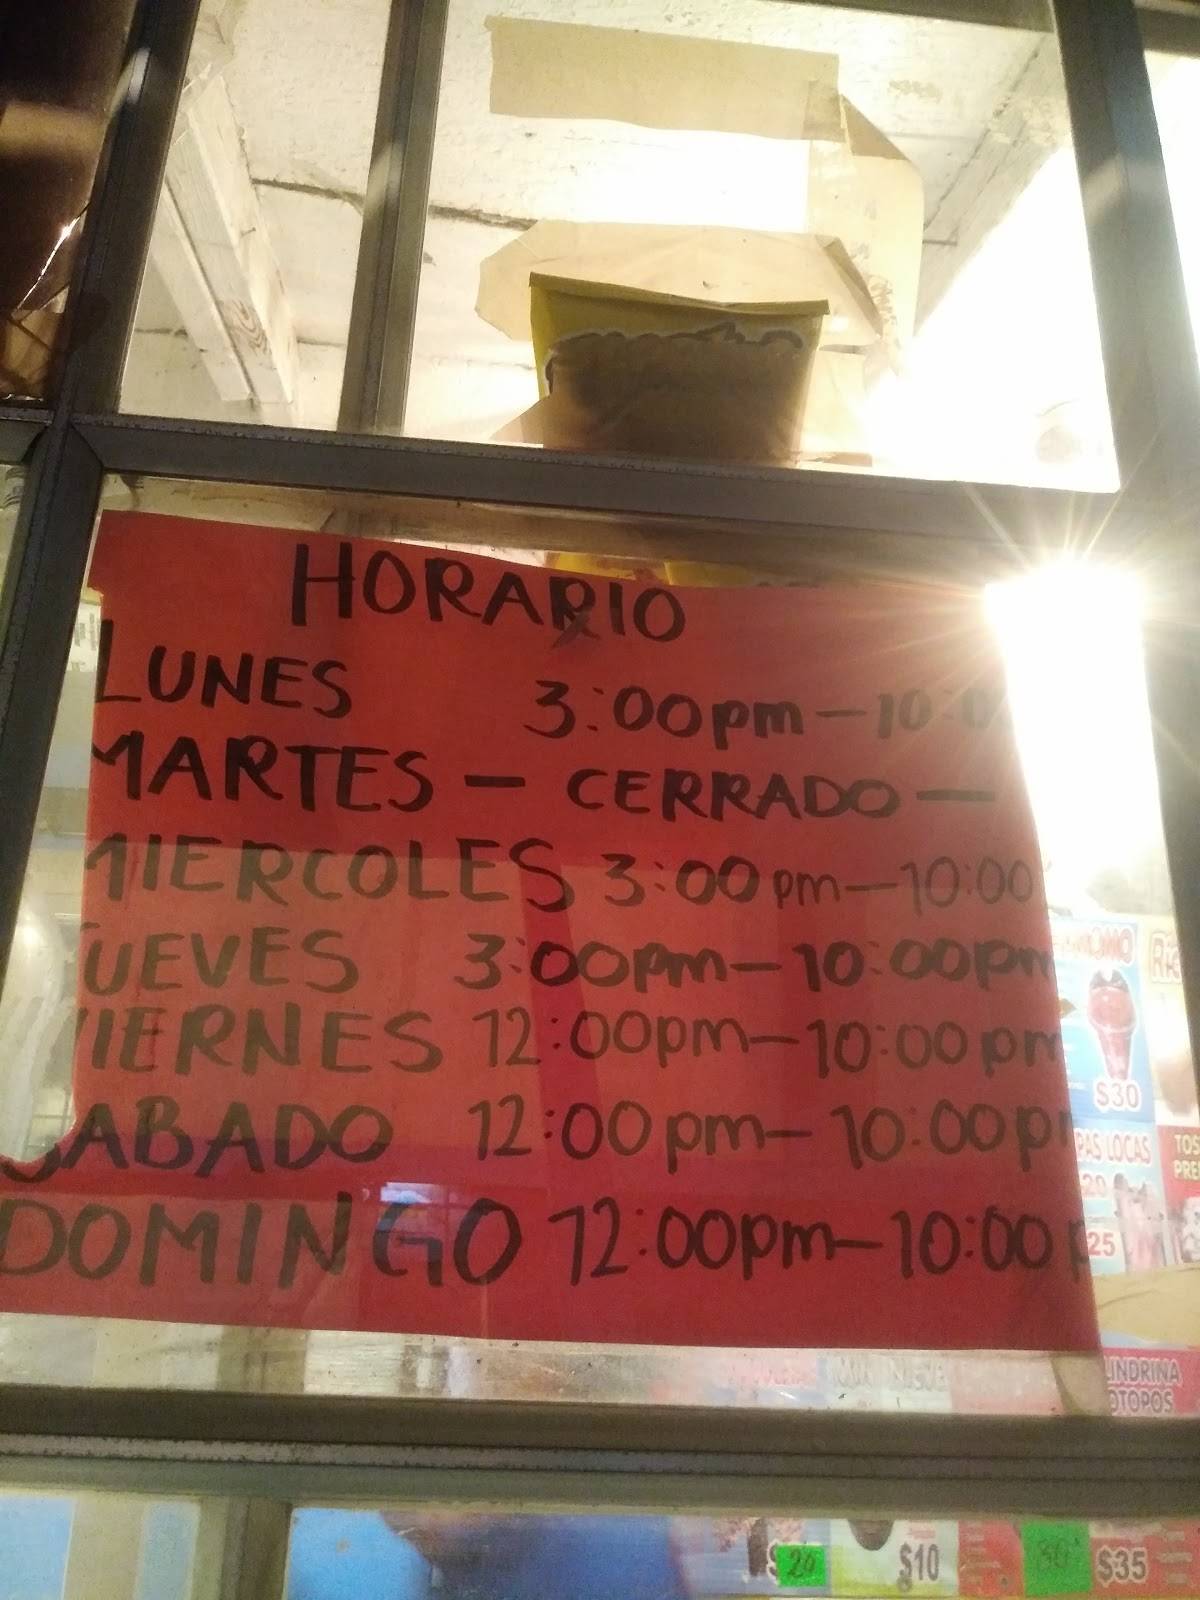 HORARIO
LUNES 3:00pm — 10:0
MARTES — CERRADO —
MIERCOLES 3:00 pm — 10:00
JUEVES 3:00pm — 10:00pm
VIERNES 12:00pm — 10:00 pm
SABADO 12:00 pm — 10:00 p
DOMINGO 12:00pm — 10:00 p
$30
PAS LOCAS
20
25
TOS
PRE
LINDRINA
OTOPOS
$ 20
$10
$35